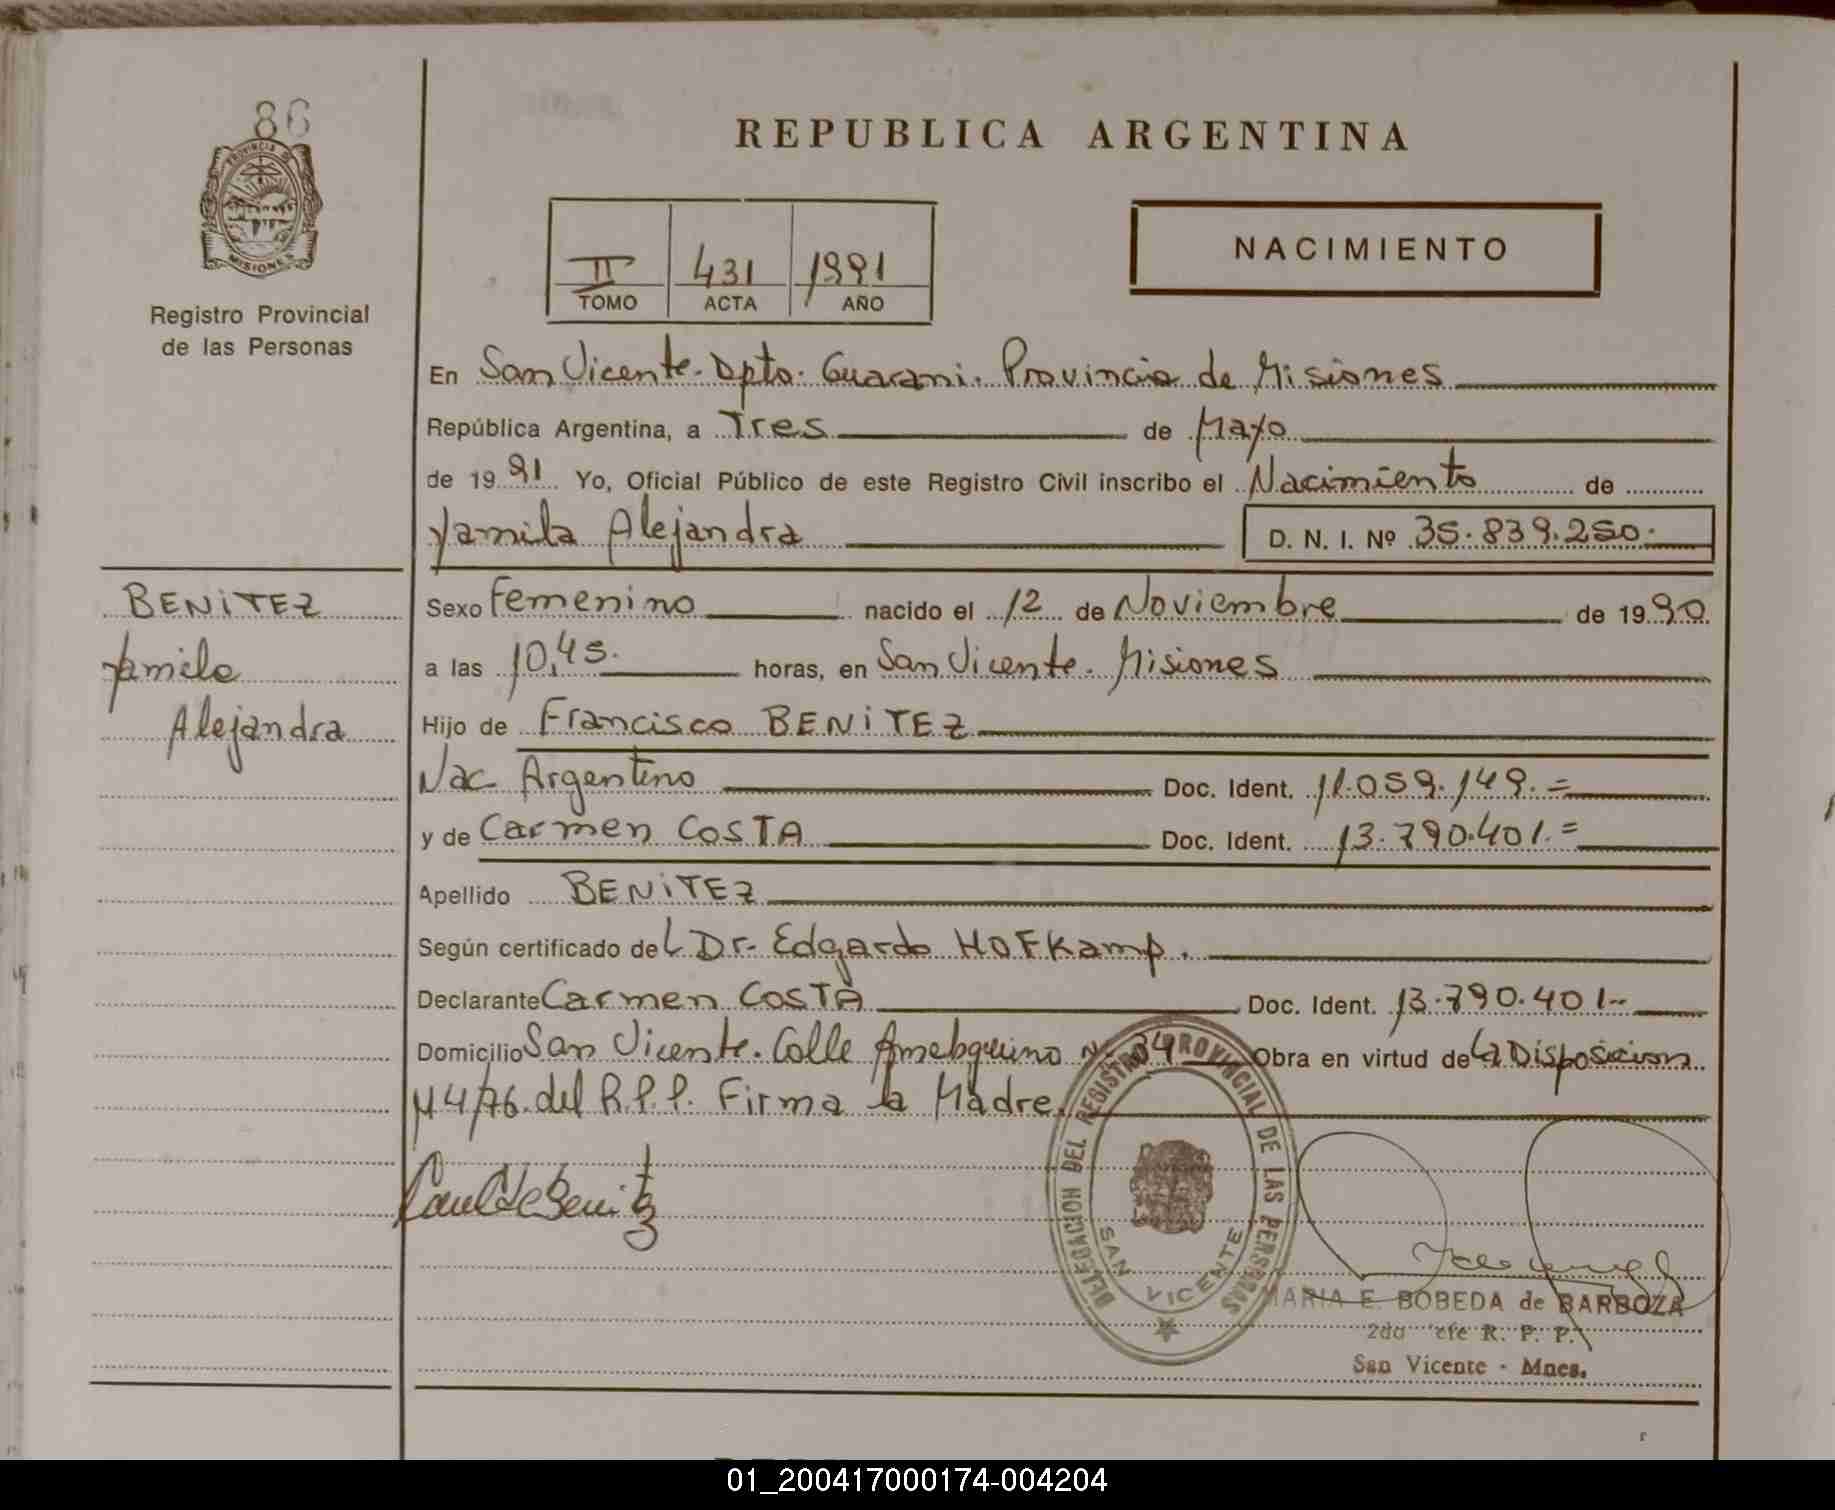 86
PROVINCIA DE
MISIONES
Registro Provincial
de las Personas
REPUBLICA ARGENTINA
II 431 1991
TOMO ACTA AÑO
NACIMIENTO
En San Vicente. Dpto. Guarani. Provincia de Misiones
República Argentina, a Tres de Mayo
de 1991 Yo, Oficial Público de este Registro Civil inscribo el Nacimiento de
Yamila Alejandra D. N. I. Nº 35.839.250.
BENITEZ
Yamila
Alejandra
Sexo Femenino nacido el 12 de Noviembre de 1990
a las 10,45. horas, en San Vicente. Misiones
Hijo de Francisco BENITEZ
Nac. Argentino Doc. Ident. 11.059.149.=
y de Carmen COSTA Doc. Ident. 13.790.401.=
Apellido BENITEZ
Según certificado del Dr. Edgardo HOFKamp.
Declarante Carmen COSTA Doc. Ident. 13.790.401--
Domicilio San Vicente. Calle Nº 34 Obra en virtud de La Disposicion
Nº 4/76 del R.P.P. Firma la Madre.
DELEGACION DEL REGISTRO PROVINCIAL DE LAS PERSONAS
SAN VICENTE
MARIA E. BOBEDA de BARBOZA
2do Jefe R. P. P.
San Vicente - Mnes.
01_200417000174-004204